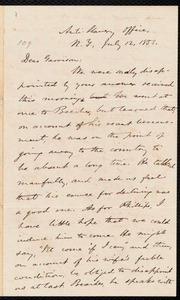 Anti-Slavery Office,
N. Y., July 12, 185
109
Dear Garrison,
We were sadly disap-
pointed by your answer received
this morning. and sent at
once to Beecher, but learned that,
on account of his recent bereave-
ment he was on the point of
going away to the country, to
be absent a long time. He talked
manfully, and made us feel
that his excuse for declining was
a good one. As for Phillips, I
have little hope that we could
induce him to come. He might
say, "I'll come if I can," and then,
on account of his wife's feeble
condition, be obliged to disappoint
us at last. Besides, he speaks with